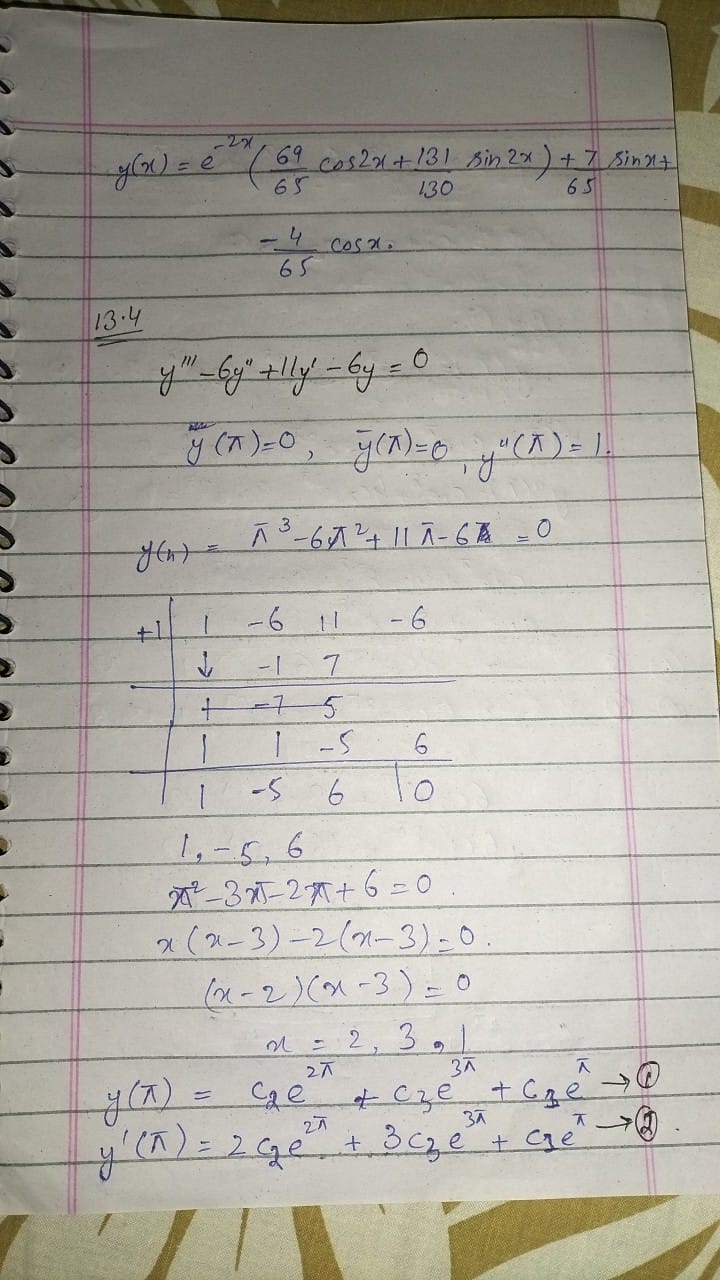 y(x) = e^-2x ( 69/65 cos2x + 131/130 sin 2x ) + 7/65 sinx +
- 4/65 cosx.
13.4
y''' - 6y'' + 11y' - 6y = 0
y(π)=0, y(π)=0, y''(π) = 1.
π^3 - 6π^2 + 11π - 6 = 0
+1 | 1 -6 11 -6
↓ -1 7
1 -7 5
1 1 -5 6
1 -5 6 | 0
1, -5, 6
π^2 - 3π - 2π + 6 = 0.
x(x-3) - 2(x-3) = 0.
(x-2)(x-3) = 0
x = 2, 3, 1
y(π) = C2e^2π + C3e^3π + C1e^π → ①
y'(π) = 2C2e^2π + 3C3e^3π + C1e^π → ②.